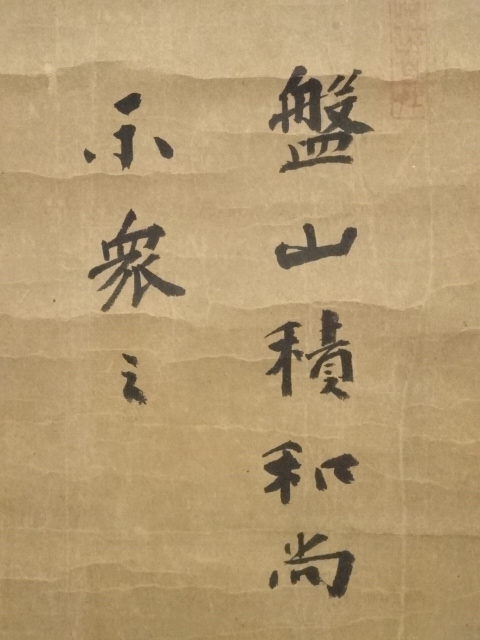 盤山積和尚
示衆云